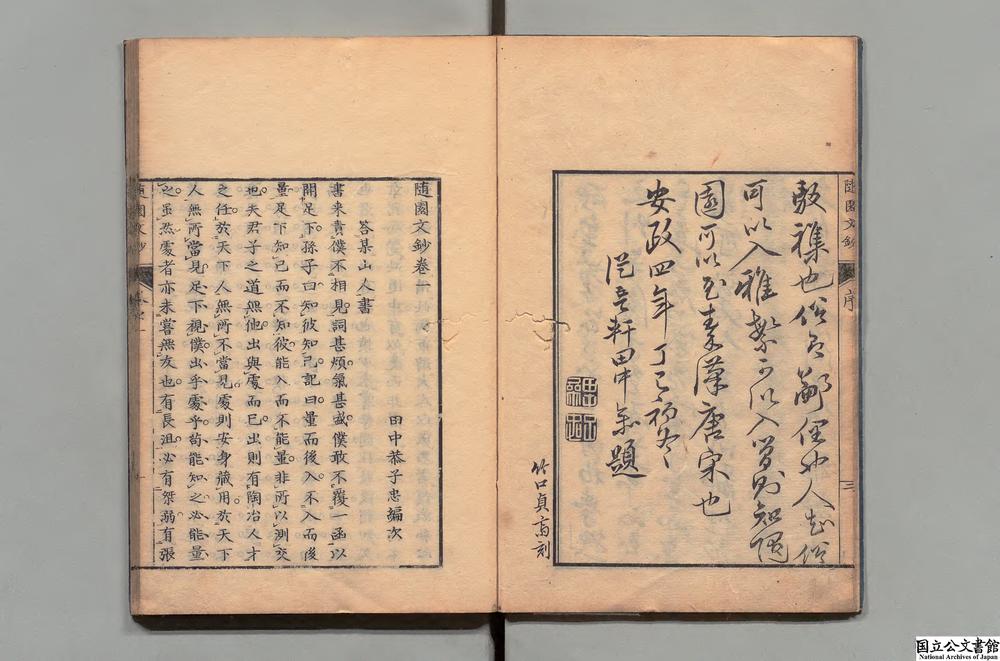 隨園文鈔 序 三
敷襍也俗
可以入雅
園可以至秦漢唐宋也
安政四年丁巳初冬
軒田中題
竹口貞高刻
隨園文鈔卷
答某山人書
田中恭子忠編次
書来責僕不相見詞甚煩氣甚盛僕敢不覆一函以
聞足下孫子曰知彼知己記曰量而後入不入而後
量足下知己而不知彼能入而不能量非所以測交
也夫君子之道無他出與處而已出則有陶冶人才
之任於天下人無所不當見處則安身藏用於天下
人無所當見足下視僕出乎處乎苟能知之必能量
之虽然處者亦未嘗無友也有長沮必有桀溺有張
国立公文書館
National Archives of Japan